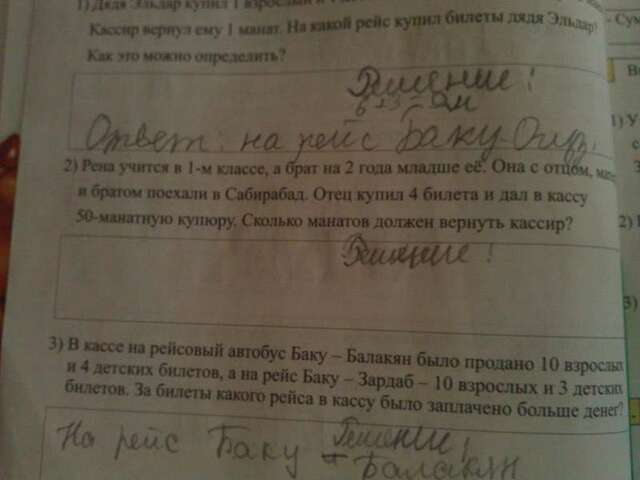 1) Дядя Эльдар купил 1 взрослый и
Кассир вернул ему 1 манат. На какой рейс купил билеты дядя Эльдар?
Как это можно определить?
Решение:
Ответ: на рейс Баку-
2) Рена учится в 1-м классе, а брат на 2 года младше её. Она с отцом,
и братом поехали в Сабирабад. Отец купил 4 билета и дал в кассу
50-манатную купюру. Сколько манатов должен вернуть кассир?
Решение:
3) В кассе на рейсовый автобус Баку – Балакян было продано 10 взрослых
и 4 детских билетов, а на рейс Баку – Зардаб – 10 взрослых и 3 детских
билетов. За билеты какого рейса в кассу было заплачено больше денег?
Решение:
На рейс Баку - Балакян
- Сум
1) У
с
2)
3)